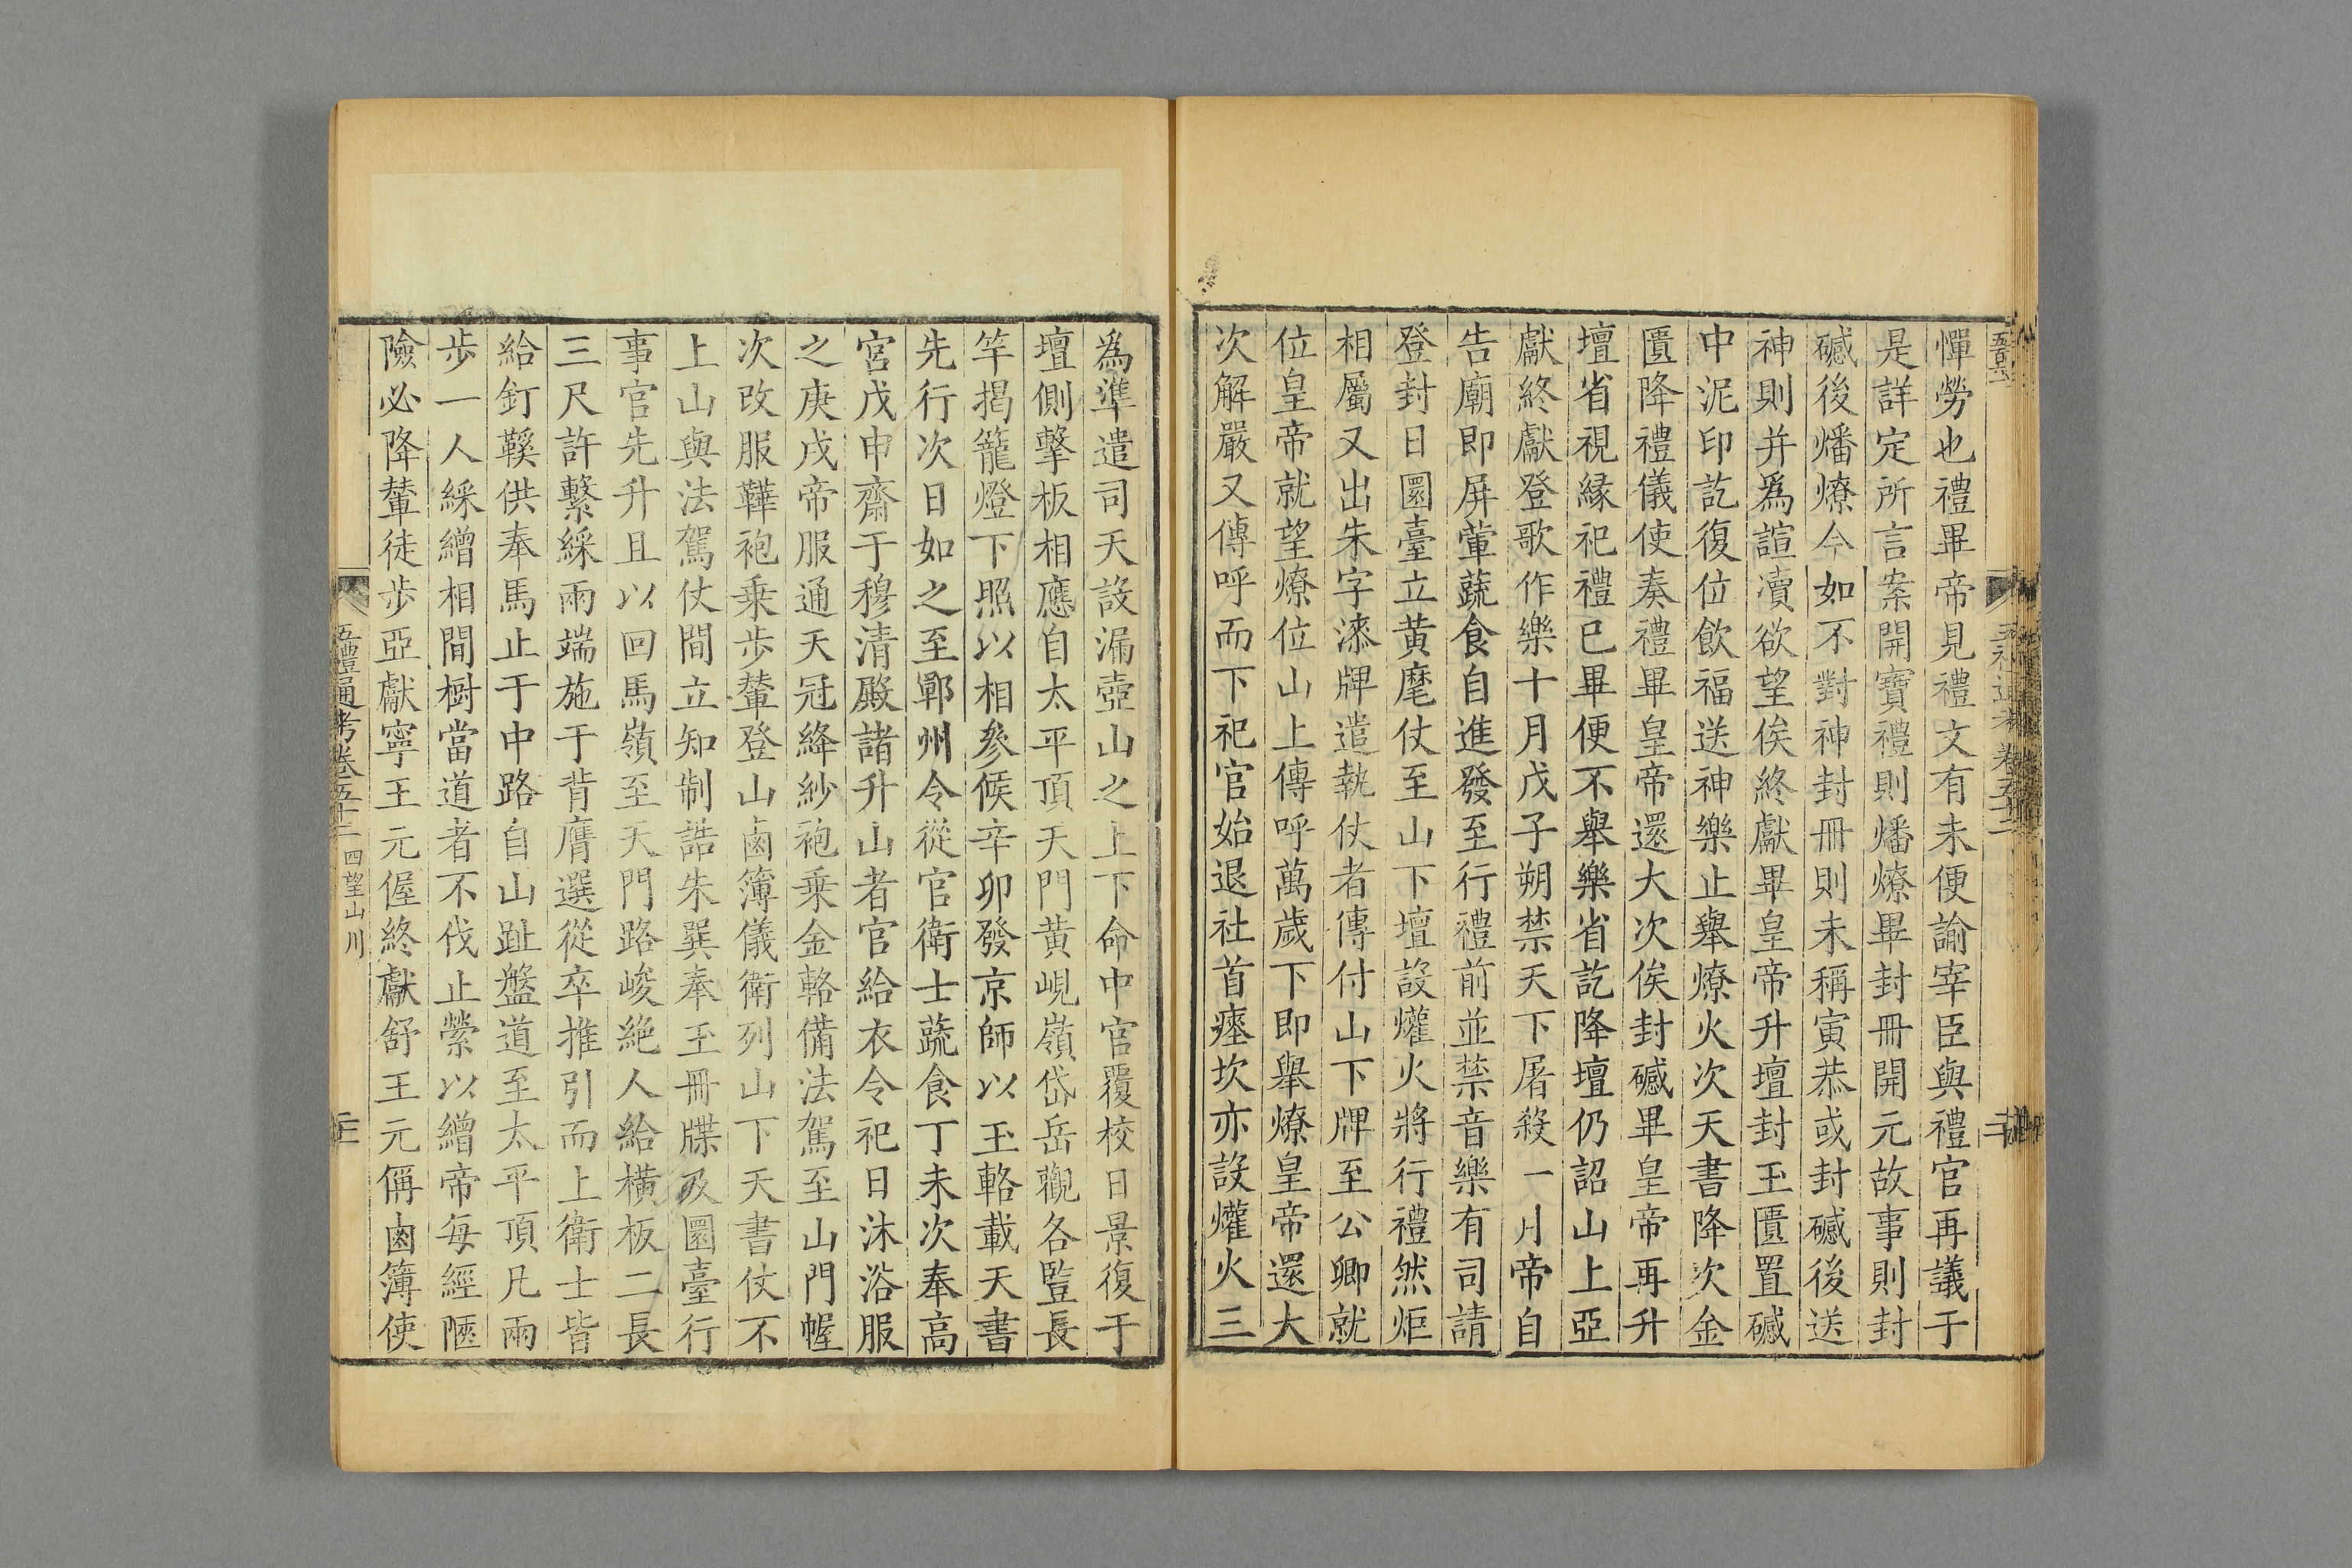 憚勞也禮畢帝見禮文有未便諭宰臣與禮官再議于
是詳定所言案開寶禮則燔燎畢封冊開元故事則封
䃭後燔燎今如不對神封冊則未稱寅恭或封䃭後送
神則并爲諠瀆欲望俟終獻畢皇帝升壇封玉匱置䃭
中泥印訖復位飲福送神樂止舉燎火次天書降次金
匱降禮儀使奏禮畢皇帝還大次俟封䃭畢皇帝再升
壇省視縁祀禮巳畢便不舉樂省訖降壇仍詔山上亞
獻終獻登歌作樂十月戊子朔禁天下屠殺一月帝自
告廟即屏葷蔬食自進發至行禮前並禁音樂有司請
登封日圜臺立黄麾仗至山下壇設爟火將行禮然炬
相屬又出朱字漆牌遣執仗者傳付山下牌至公卿就
位皇帝就望燎位山上傳呼萬歲下即舉燎皇帝還大
次解嚴又傳呼而下祀官始退社首瘞坎亦設爟火三
為準遣司天設漏壺山之上下命中官覆校日景復于
壇側擊板相應自太平頂天門黄峴嶺岱岳觀各豎長
竿揭籠燈下照以相參候辛卯發京師以玉輅載天書
先行次日如之至鄆州令從官衛士蔬食丁未次奉高
宮戊申齋于穆清殿諸升山者官給衣令祀日沐浴服
之庚戌帝服通天冠絳紗袍乗金輅備法駕至山門幄
次改服鞾袍乗步輦登山鹵簿儀衛列山下天書仗不
上山與法駕仗間立知制誥朱巽奉玉冊牒及圜臺行
事官先升且以回馬嶺至天門路峻絶人給横板二長
三尺許繫綵兩端施于背膺選從卒推引而上衛士皆
給釘鞵供奉馬止于中路自山趾盤道至太平頂凡兩
步一人綵繒相間樹當道者不伐止縈以繒帝每經陿
險必降輦徒步亞獻寧王元偓終獻舒王元偁鹵簿使
五禮通考卷五十二 四望山川